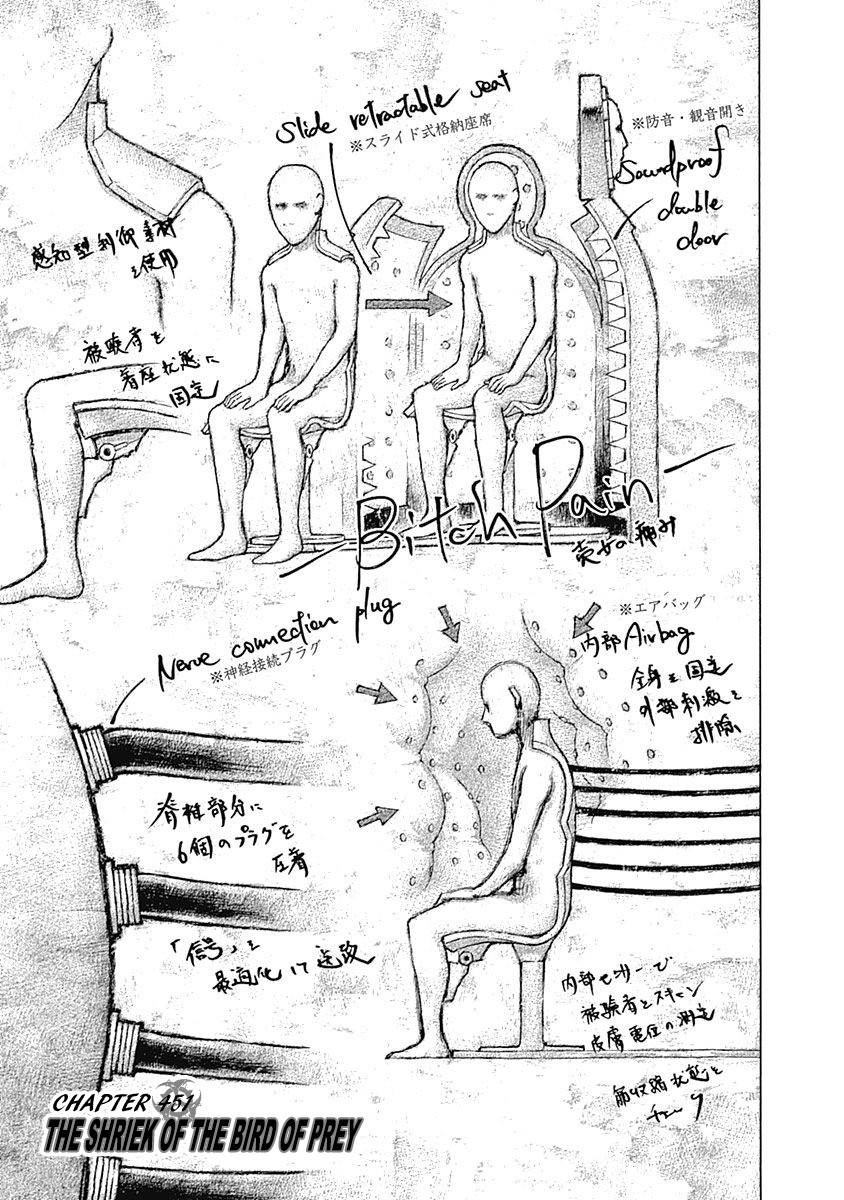 Slide retractable seat
※スライド式格納座席
※防音・観音開き
Soundproof
double
door
感知型制御素材
を使用
被験者を
着座状態に
固定
Bitch Pain
売女の痛み
Nerve connection plug
※神経接続プラグ
※エアバッグ
内部 Airbag
全身を固定
外部刺激を
排除
脊椎部分に
6個のプラグを
圧着
「信号」を
最適化して送致
内部センサーで
被験者をスキャン
皮膚電位の測定
筋収縮状態を
CHAPTER 451
THE SHRIEK OF THE BIRD OF PREY